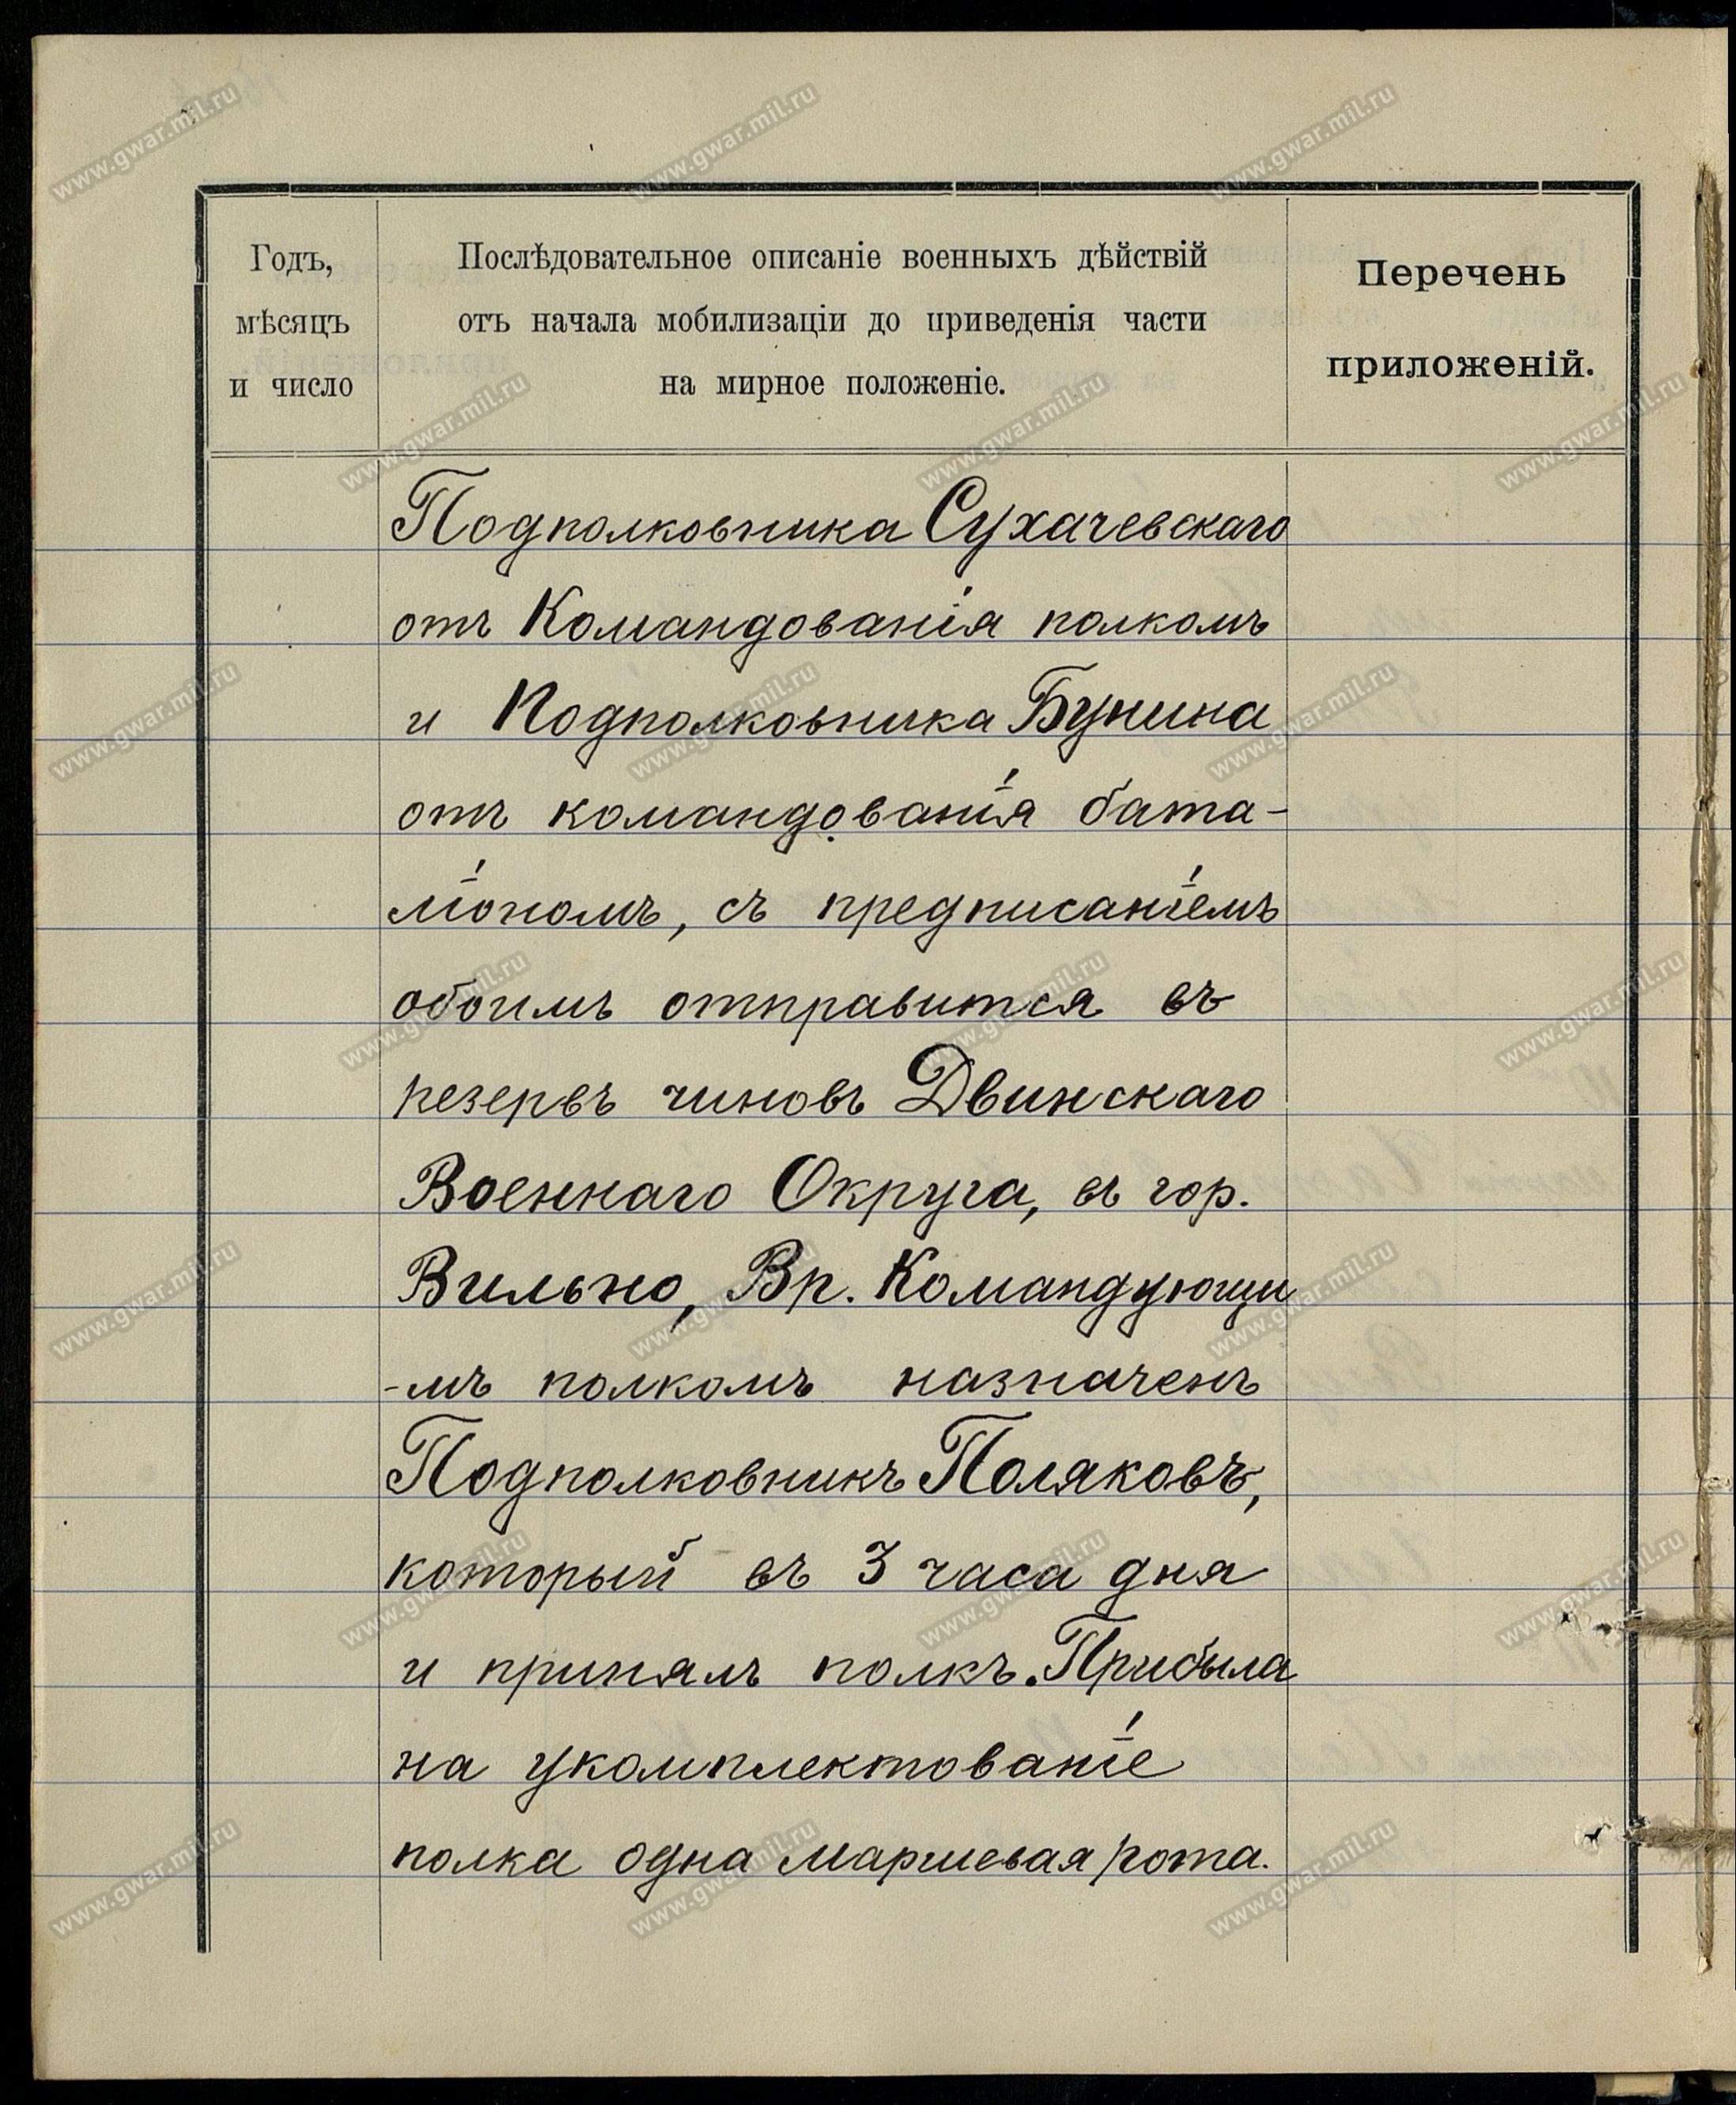 Годъ,
мѣсяцъ
и число
Послѣдовательное описаніе военныхъ дѣйствій
отъ начала мобилизаціи до приведенія части
на мирное положеніе.
Перечень
приложеній.
Подполковника Сухачевскаго
отъ Командованія полкомъ
и Подполковника Бунина
отъ командованія бата-
ліономъ, съ предписаніемъ
обоимъ отправится въ
резервъ чиновъ Двинскаго
Военнаго Округа, въ гор.
Вильно, Вр. Командующи
-мъ полкомъ назначенъ
Подполковникъ Поляковъ,
который въ 3 часа дня
и принялъ полкъ. Прибыла
на укомплектованіе
полка одна маршевая рота.
www.gwar.mil.ru